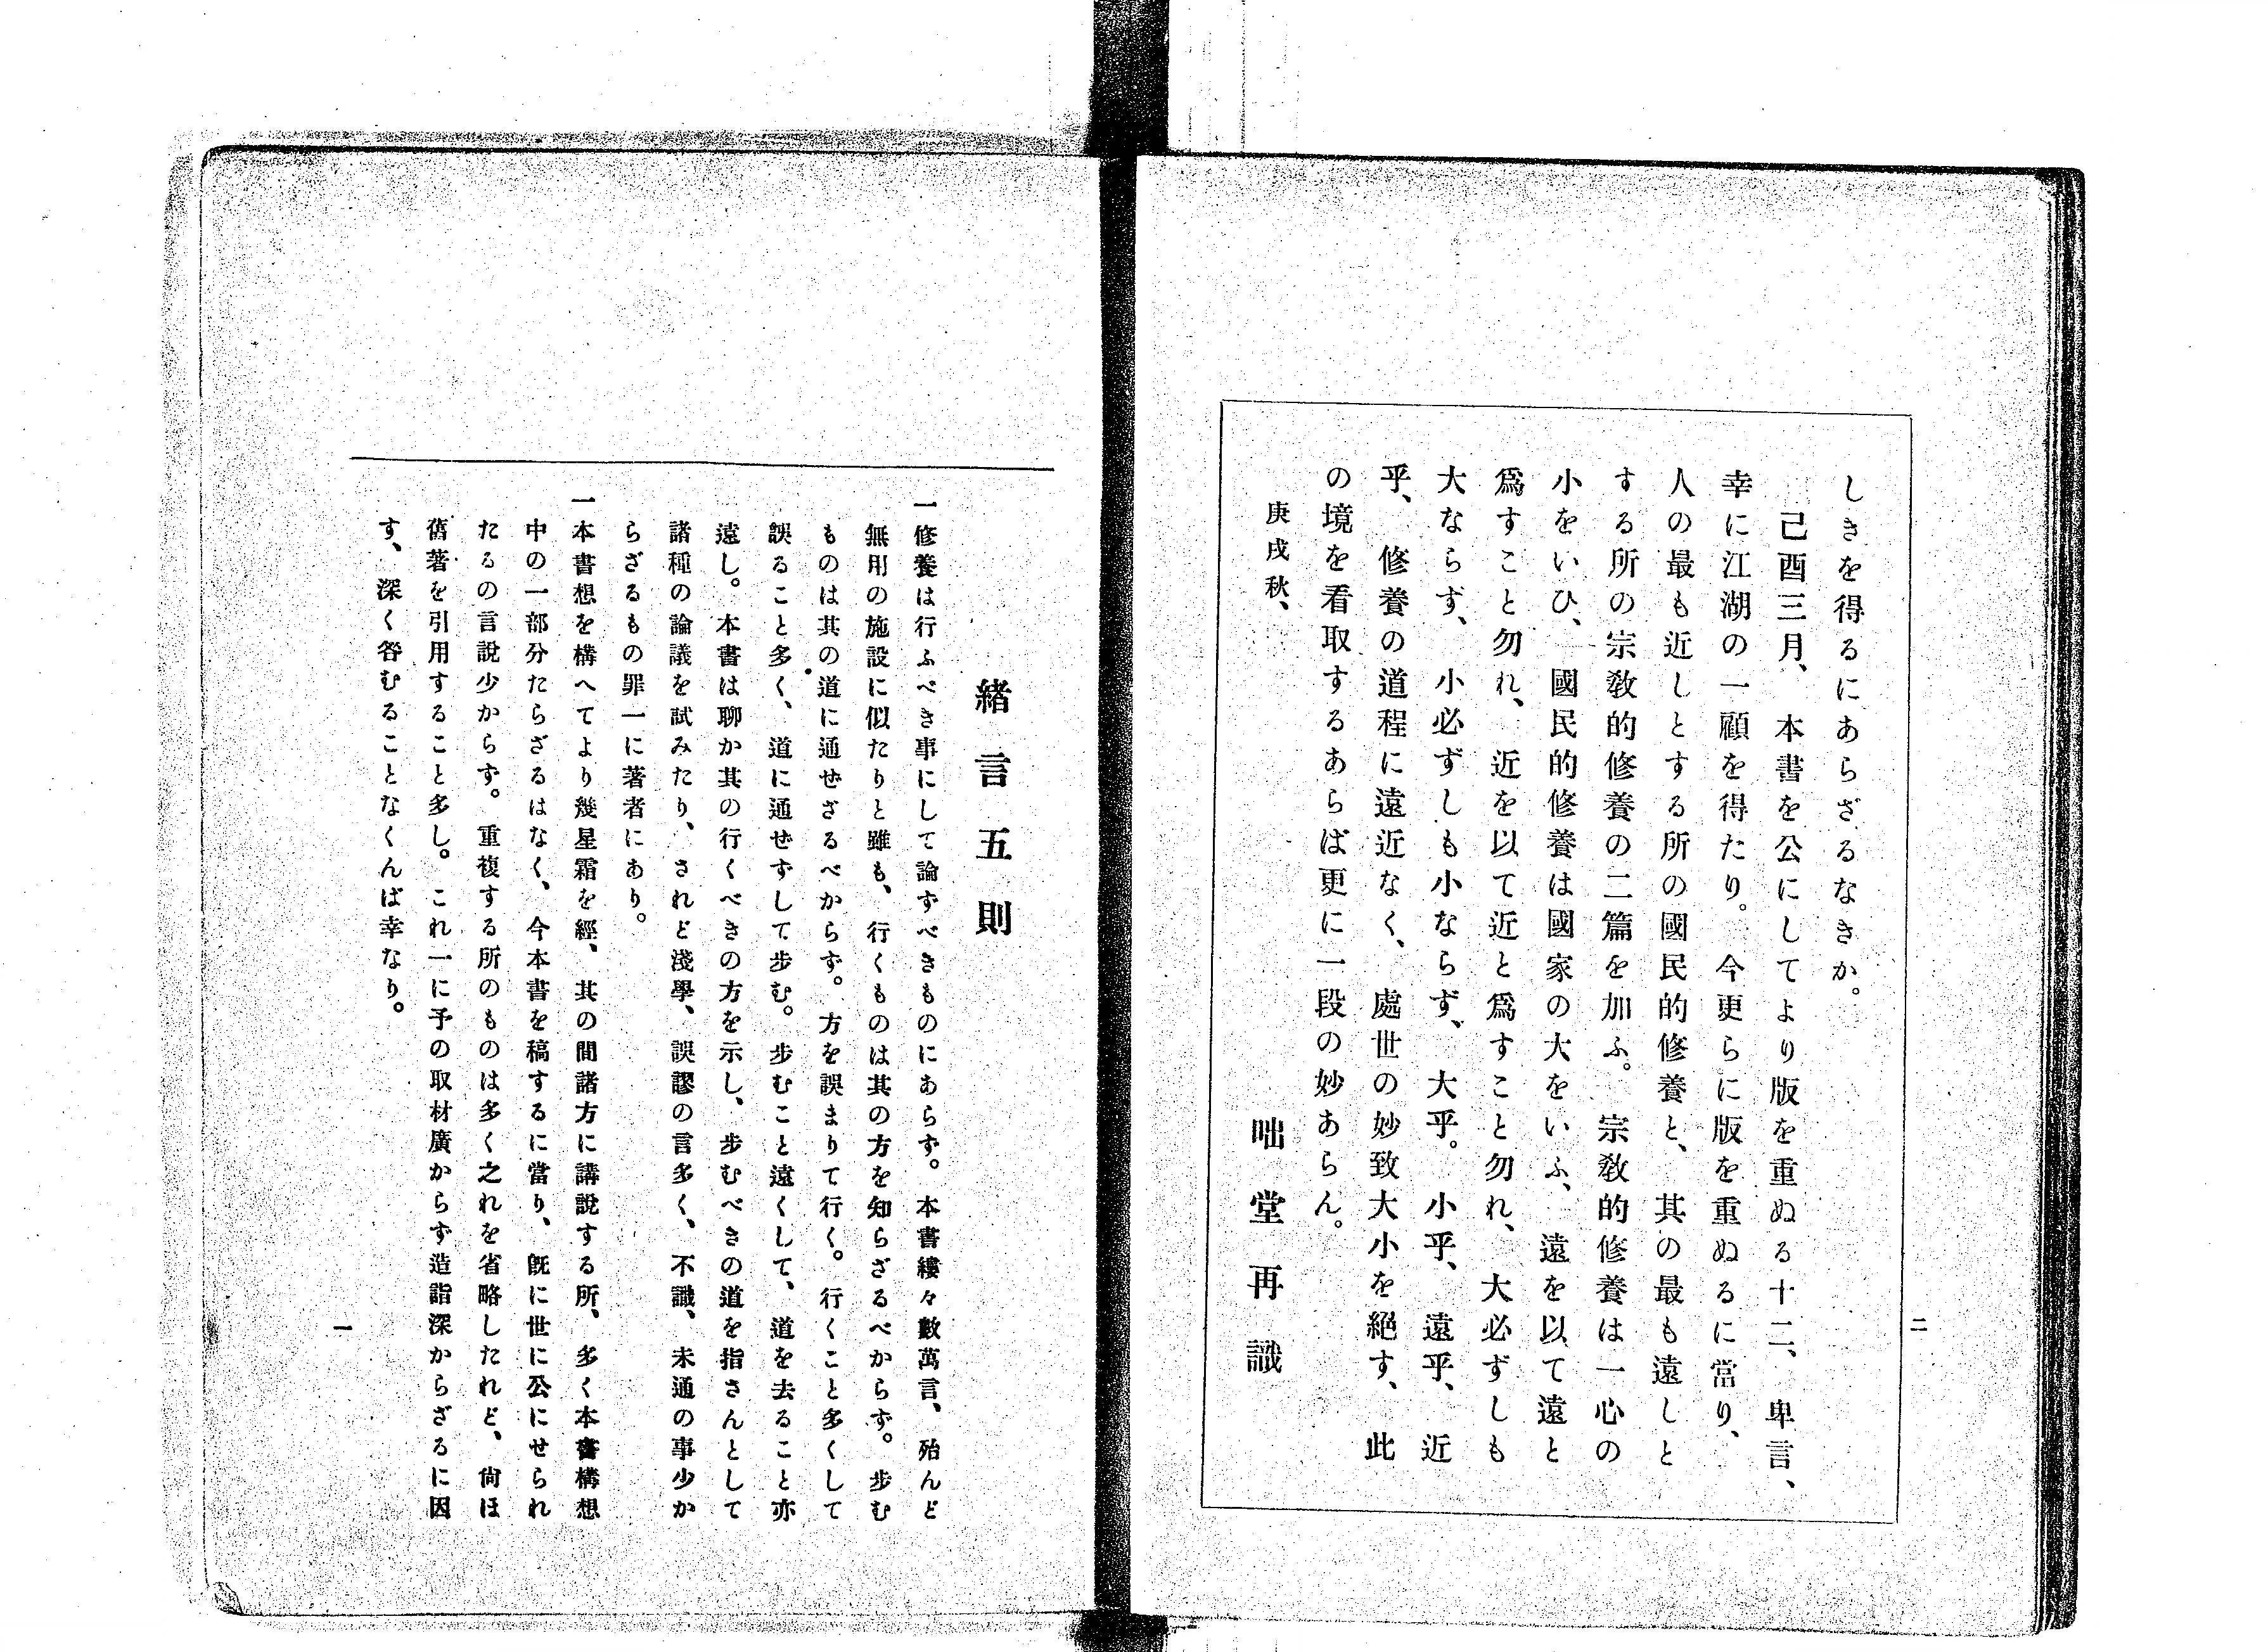 しきを得るにあらざるなきか。
己酉三月、本書を公にしてより版を重ぬる十二、卑言、
幸に江湖の一顧を得たり。今更らに版を重ぬるに當り、
人の最も近しとする所の國民的修養と、其の最も遠しと
する所の宗敎的修養の二篇を加ふ。宗敎的修養は一心の
小をいひ、國民的修養は國家の大をいふ、遠を以て遠と
爲すこと勿れ、近を以て近と爲すこと勿れ、大必ずしも
大ならず、小必ずしも小ならず、大乎。小乎、遠乎、近
乎、修養の道程に遠近なく、處世の妙致大小を絕す、此
の境を看取するあらば更に一段の妙あらん。
庚戌秋、
咄堂再識
二
緖言五則
一修養は行ふべき事にして論ずべきものにあらず。本書縷々數萬言、殆んど
無用の施設に似たりと雖も、行くものは其の方を知らざるべからず。步む
ものは其の道に通せざるべからず。方を誤まりて行く。行くこと多くして
誤ること多く、道に通せずして步む。步むこと遠くして、道を去ること亦
遠し。本書は聊か其の行くべきの方を示し、步むべきの道を指さんとして
諸種の論議を試みたり、されど淺學、誤謬の言多く、不識、未通の事少か
らざるもの罪一に著者にあり。
一本書想を構へてより幾星霜を經、其の間諸方に講說する所、多く本書構想
中の一部分たらざるはなく、今本書を稿するに當り、旣に世に公にせられ
たるの言說少からず。重複する所のものは多く之れを省略したれど、尙ほ
舊著を引用すること多し。これ一に予の取材廣からず造詣深からざるに因
す、深く咎むることなくんば幸なり。
一